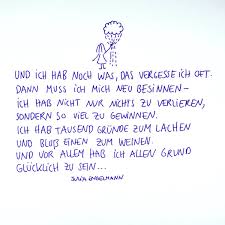 UND ICH HAB NOCH WAS, DAS VERGESSE ICH OFT.
DANN MUSS ICH MICH NEU BESINNEN –
ICH HAB NICHT NUR NICHTS ZU VERLIEREN,
SONDERN SO VIEL ZU GEWINNEN.
ICH HAB TAUSEND GRÜNDE ZUM LACHEN
UND BLOß EINEN ZUM WEINEN.
UND VOR ALLEM HAB ICH ALLEN GRUND
GLÜCKLICH ZU SEIN...
JULIA ENGELMANN